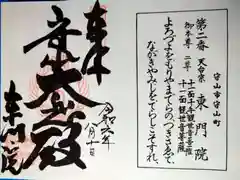 奉拝
大悲殿
東門院
令和六年
八月十一日
守山市守山町
第二番 天台宗 東門院
御本尊 二尊
十一面千手観世音菩薩
十一面観世音菩薩
よろづよをもりやまてらのつきさゑて
ながきやみじをてらしこそすれ